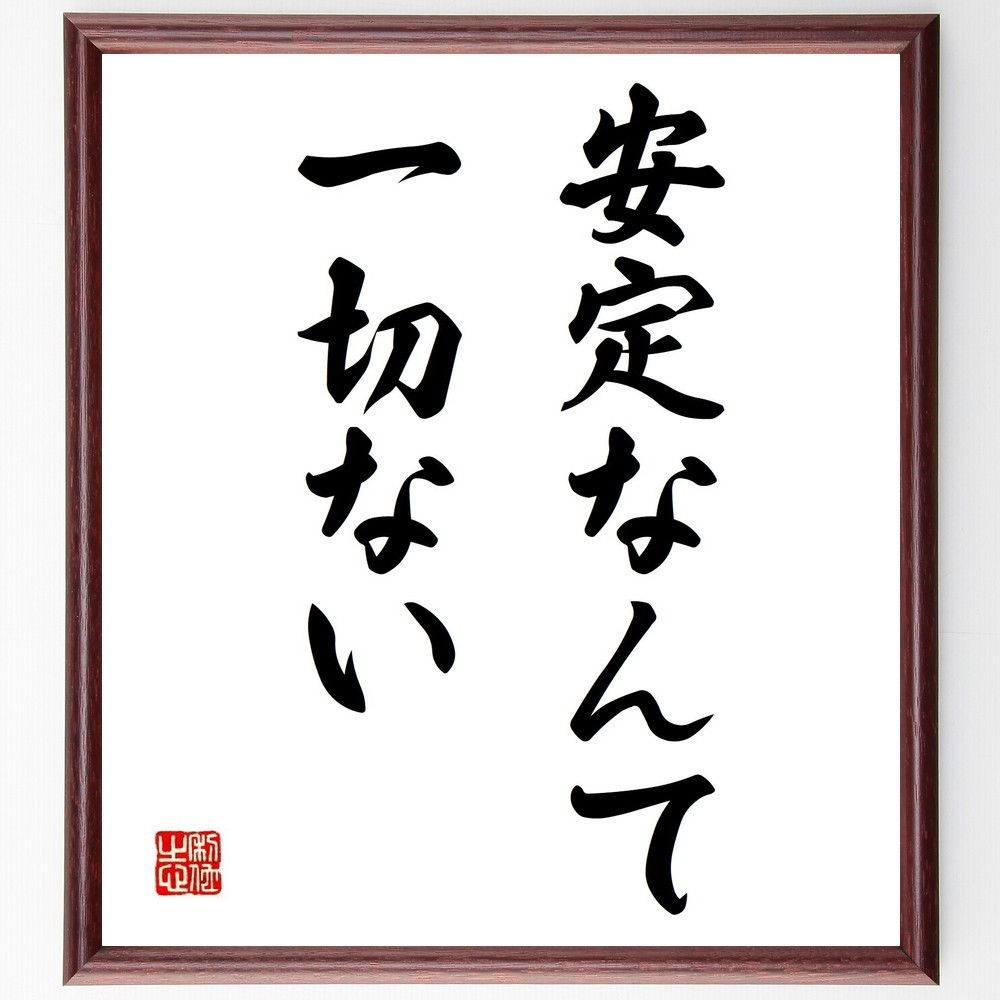 安定なんて
一切ない